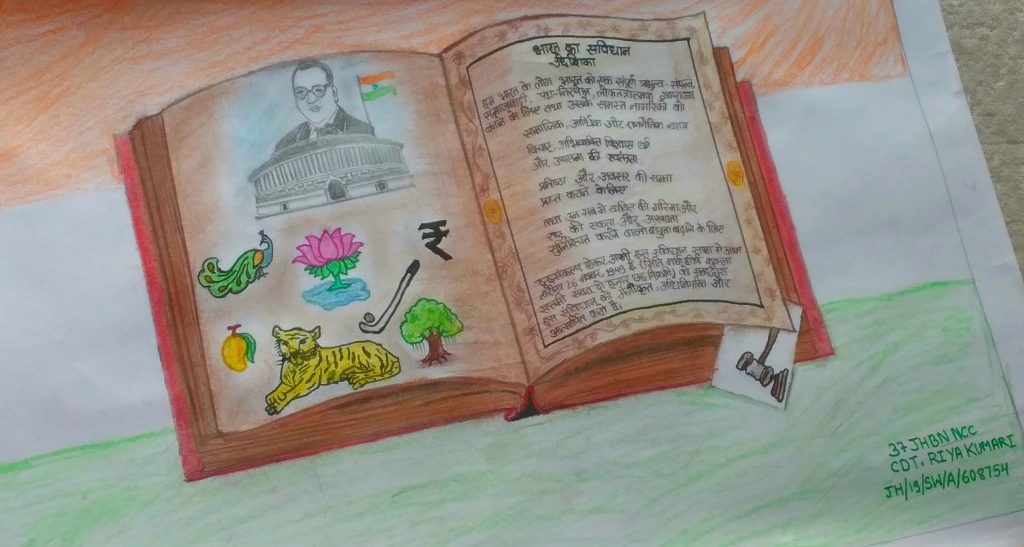 भारत का संविधान
उद्देशिका
हम भारत के लोग भारत को एक संपूर्ण प्रभुत्व-संपन्न
समाजवादी, पंथ-निरपेक्ष, लोकतंत्रात्मक गणराज्य
बनाने के लिए तथा उसके समस्त नागरिकों को
सामाजिक, आर्थिक और राजनैतिक न्याय
विचार अभिव्यक्ति विश्वास धर्म
और उपासना की स्वतंत्रता
प्रतिष्ठा और अवसर की समता
प्राप्त कराने के लिए
तथा उन सब में व्यक्ति की गरिमा और
की एकता और अखंडता
सुनिश्चित करने वाली बंधुता बढ़ाने के लिए
दृढ़ संकल्प होकर अपनी इस संविधान सभा में आज
तारीख 26 नवम्बर, 1949 ई.
को एतद्द्वारा
इस संविधान को अंगीकृत, अधिनियमित और
आत्मार्पित करते हैं।
₹
37 JHBN NCC
CDT. RIYA KUMARI
JH/19/SW/A/608754